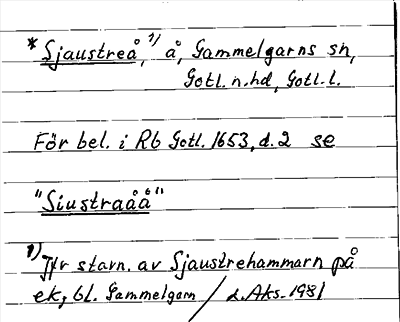 * Sjaustreå,¹⁾ å, Gammelgarns sn,
Gotl. n. hd, Gotl. l.
För bel. i Rb Gotl. 1653, d. 2 se
"Siustraåå"
1) Jfr stavn. av Sjaustrehammarn på
ek, bl. Gammelgarn / L. Aks. 1981